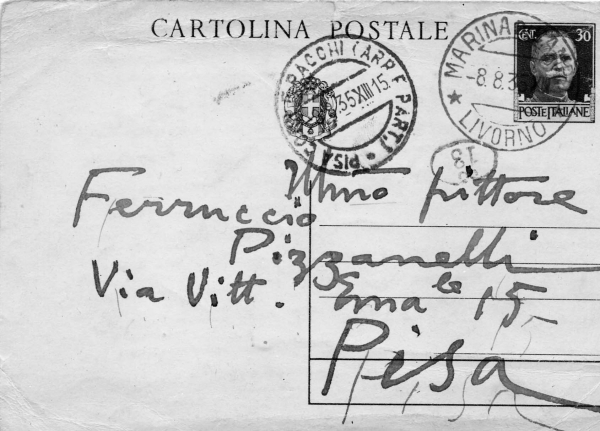 CARTOLINA POSTALE
CENT. 30
POSTE ITALIANE
PACCHI (ARR. E PART.) PISA
35 XIII 15
MARINA
-8.8.3
LIVORNO
18
Illmo pittore
Ferruccio
Pizzanelli
Via Vitt. Emale 15
Pisa